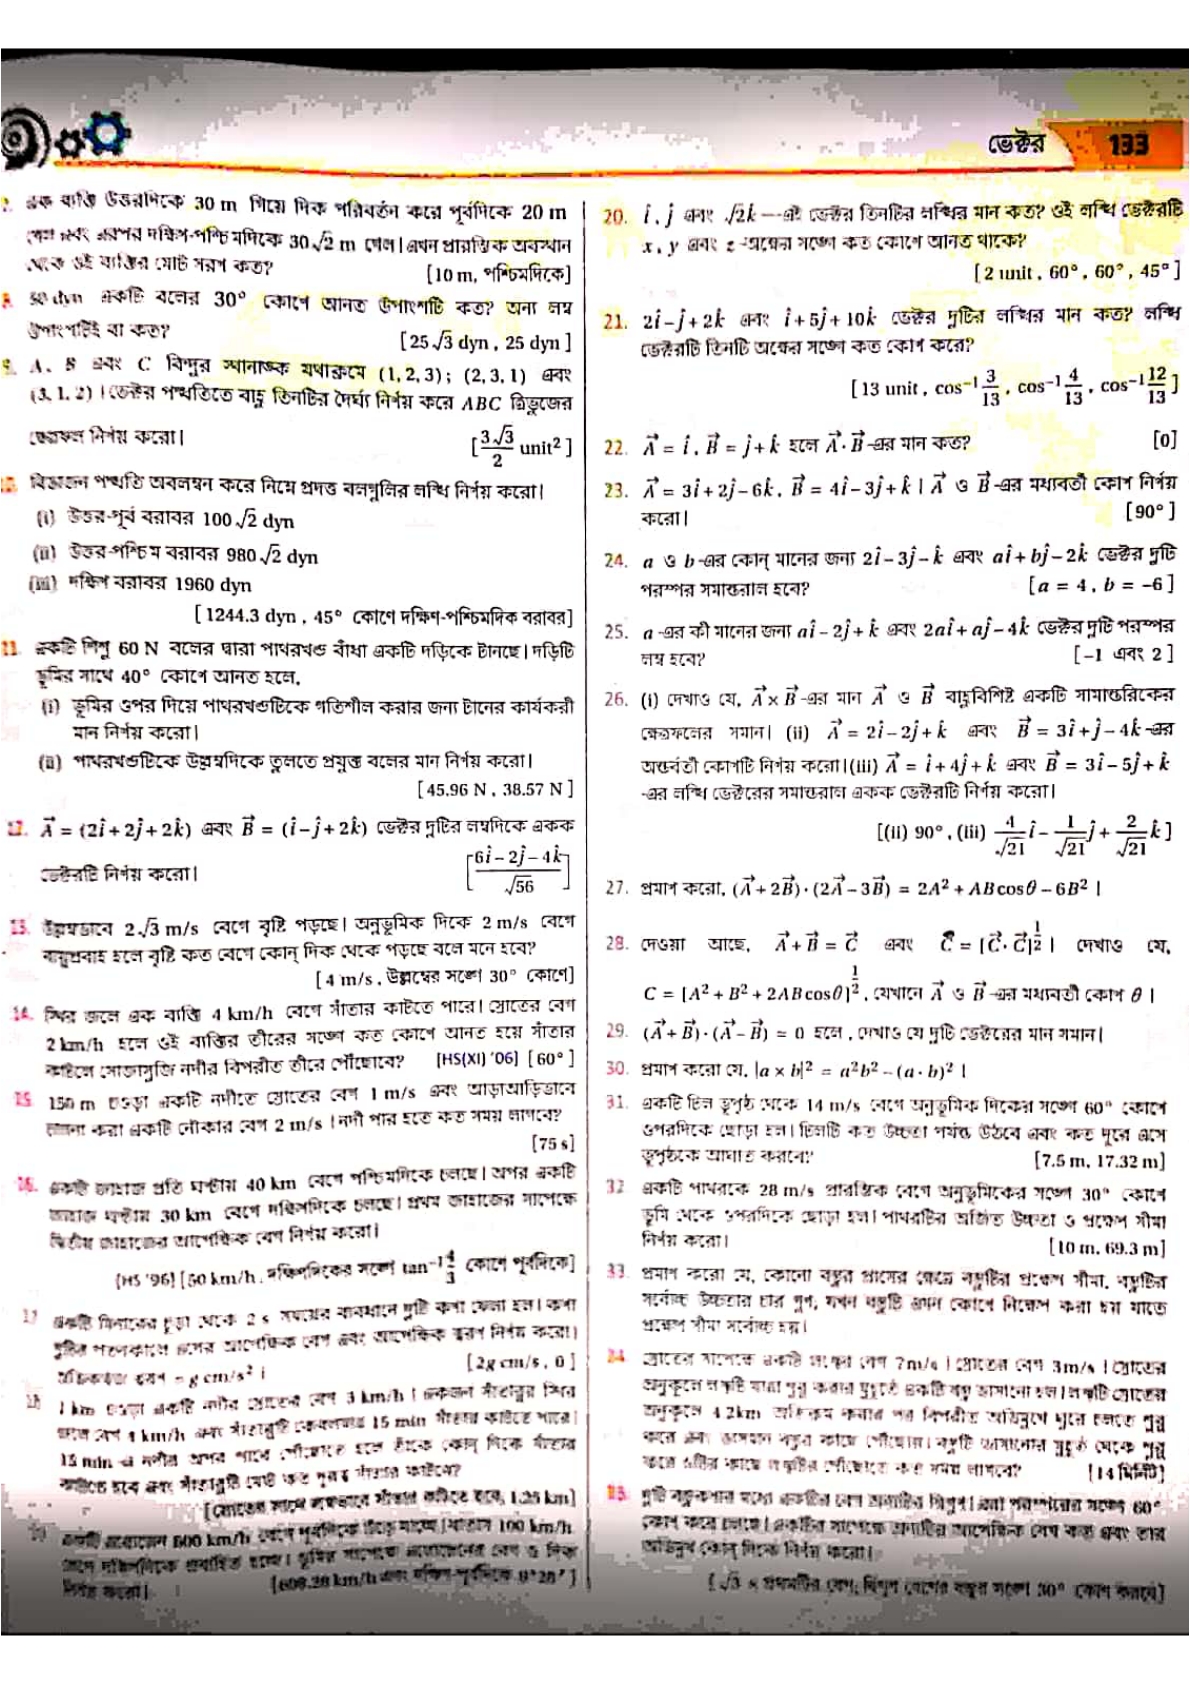 ভেক্টর 133
এক ব্যক্তি উত্তরদিকে 30 m গিয়ে দিক পরিবর্তন করে পূর্বদিকে 20 m
গেল এবং এরপর দক্ষিণ-পশ্চিমদিকে 30√2 m গেল। এখন প্রারম্ভিক অবস্থান
থেকে ওই ব্যক্তির মোট সরণ কত? [10 m, পশ্চিমদিকে]
8. 50 dyn একটি বলের 30° কোণে আনত উপাংশটি কত? অন্য লম্ব
উপাংশটিই বা কত? [25√3 dyn , 25 dyn ]
9. A, B এবং C বিন্দুর স্থানাঙ্ক যথাক্রমে (1, 2, 3) ; (2, 3, 1) এবং
(3, 1, 2) । ভেক্টর পদ্ধতিতে বাহু তিনটির দৈর্ঘ্য নির্ণয় করে ABC ত্রিভুজের
ক্ষেত্রফল নির্ণয় করো। [3√3/2 unit²]
10. বিভাজন পদ্ধতি অবলম্বন করে নিম্নে প্রদত্ত বলগুলির লব্ধি নির্ণয় করো।
(i) উত্তর-পূর্ব বরাবর 100√2 dyn
(ii) উত্তর-পশ্চিম বরাবর 980√2 dyn
(iii) দক্ষিণ বরাবর 1960 dyn
[ 1244.3 dyn , 45° কোণে দক্ষিণ-পশ্চিমদিক বরাবর]
11. একটি শিশু 60 N বলের দ্বারা পাথরখণ্ড বাঁধা একটি দড়িকে টানছে। দড়িটি
ভূমির সাথে 40° কোণে আনত হলে,
(i) ভূমির ওপর দিয়ে পাথরখণ্ডটিকে গতিশীল করার জন্য টানের কার্যকরী
মান নির্ণয় করো।
(ii) পাথরখণ্ডটিকে উল্লম্বদিকে তুলতে প্রযুক্ত বলের মান নির্ণয় করো।
[ 45.96 N , 38.57 N ]
12. A⃗ = (2î + 2ĵ + 2k̂) এবং B⃗ = (î – ĵ + 2k̂) ভেক্টর দুটির লম্বদিকে একক
ভেক্টরটি নির্ণয় করো। [(6î – 2ĵ – 4k̂)/√56]
13. উল্লম্বভাবে 2√3 m/s বেগে বৃষ্টি পড়ছে। অনুভূমিক দিকে 2 m/s বেগে
বায়ুপ্রবাহ হলে বৃষ্টি কত বেগে কোন্ দিক থেকে পড়ছে বলে মনে হবে?
[ 4 m/s , উল্লম্বের সঙ্গে 30° কোণে]
14. স্থির জলে এক ব্যক্তি 4 km/h বেগে সাঁতার কাটতে পারে। স্রোতের বেগ
2 km/h হলে ওই ব্যক্তির তীরের সঙ্গে কত কোণে আনত হয়ে সাঁতার
কাটলে সোজাসুজি নদীর বিপরীত তীরে পৌঁছোবে? [HS(XI) '06] [ 60° ]
15. 150 m চওড়া একটি নদীতে স্রোতের বেগ 1 m/s এবং আড়াআড়িভাবে
চালনা করা একটি নৌকার বেগ 2 m/s । নদী পার হতে কত সময় লাগবে?
[75 s]
16. একটি জাহাজ প্রতি ঘণ্টায় 40 km বেগে পশ্চিমদিকে চলছে। অপর একটি
জাহাজ ঘণ্টায় 30 km বেগে দক্ষিণদিকে চলছে। প্রথম জাহাজের সাপেক্ষে
দ্বিতীয় জাহাজের আপেক্ষিক বেগ নির্ণয় করো।
[HS '96] [50 km/h , দক্ষিণদিকের সঙ্গে tan⁻¹ 4/3 কোণে পূর্বদিকে]
17 একটি মিনারের চূড়া থেকে 2 s সময়ের ব্যবধানে দুটি কণা ফেলা হল। কণা
দুটির পতনকালে ওদের আপেক্ষিক বেগ এবং আপেক্ষিক ত্বরণ নির্ণয় করো।
অভিকর্ষজ ত্বরণ = g cm/s² । [2g cm/s , 0 ]
18 1 km চওড়া একটি নদীর স্রোতের বেগ 3 km/h । একজন সাঁতারুর স্থির
জলে বেগ 4 km/h এবং সাঁতারুটি কেবলমাত্র 15 min সাঁতার কাটতে পারে।
15 min এ নদীর অপর পারে পৌঁছোতে হলে তাঁকে কোন্ দিকে সাঁতার
কাটতে হবে এবং সাঁতারুটি মোট কত দূরত্ব সাঁতার কাটবে?
[স্রোতের সাথে লম্বভাবে সাঁতার কাটতে হবে, 1.25 km]
19 একটি এরোপ্লেন 600 km/h বেগে পূর্বদিকে উড়ে যাচ্ছে। বাতাস 100 km/h
বেগে দক্ষিণদিকে প্রবাহিত হচ্ছে। ভূমির সাপেক্ষে এরোপ্লেনের বেগ ও দিক
নির্ণয় করো। [608.28 km/h এবং দক্ষিণ-পূর্বদিকে 9°28′ ]
20. î , ĵ এবং √2k̂ —এই ভেক্টর তিনটির লব্ধির মান কত? ওই লব্ধি ভেক্টরটি
x , y এবং z -অক্ষের সঙ্গে কত কোণে আনত থাকে?
[ 2 unit , 60° , 60° , 45° ]
21. 2î – ĵ + 2k̂ এবং î + 5ĵ + 10k̂ ভেক্টর দুটির লব্ধির মান কত? লব্ধি
ভেক্টরটি তিনটি অক্ষের সঙ্গে কত কোণ করে?
[ 13 unit , cos⁻¹ 3/13 , cos⁻¹ 4/13 , cos⁻¹ 12/13 ]
22. A⃗ = î , B⃗ = ĵ + k̂ হলে A⃗ · B⃗ -এর মান কত? [0]
23. A⃗ = 3î + 2ĵ – 6k̂ , B⃗ = 4î – 3ĵ + k̂ । A⃗ ও B⃗ -এর মধ্যবর্তী কোণ নির্ণয়
করো। [ 90° ]
24. a ও b -এর কোন্ মানের জন্য 2î – 3ĵ – k̂ এবং aî + bĵ – 2k̂ ভেক্টর দুটি
পরস্পর সমান্তরাল হবে? [ a = 4 , b = –6 ]
25. a -এর কী মানের জন্য aî – 2ĵ + k̂ এবং 2aî + aĵ – 4k̂ ভেক্টর দুটি পরস্পর
লম্ব হবে? [ –1 এবং 2 ]
26. (i) দেখাও যে, A⃗ × B⃗ -এর মান A⃗ ও B⃗ বাহুবিশিষ্ট একটি সামান্তরিকের
ক্ষেত্রফলের সমান। (ii) A⃗ = 2î – 2ĵ + k̂ এবং B⃗ = 3î + ĵ – 4k̂ -এর
অন্তর্বর্তী কোণটি নির্ণয় করো। (iii) A⃗ = î + 4ĵ + k̂ এবং B⃗ = 3î – 5ĵ + k̂
-এর লব্ধি ভেক্টরের সমান্তরাল একক ভেক্টরটি নির্ণয় করো।
[(ii) 90° , (iii) 4/√21 î – 1/√21 ĵ + 2/√21 k̂ ]
27. প্রমাণ করো, (A⃗ + 2B⃗) · (2A⃗ – 3B⃗) = 2A² + AB cosθ – 6B² ।
28. দেওয়া আছে, A⃗ + B⃗ = C⃗ এবং C⃗ = [C⃗ · C⃗]^½ । দেখাও যে,
C = [A² + B² + 2AB cosθ]^½ , যেখানে A⃗ ও B⃗ -এর মধ্যবর্তী কোণ θ ।
29. (A⃗ + B⃗) · (A⃗ – B⃗) = 0 হলে , দেখাও যে দুটি ভেক্টরের মান সমান।
30. প্রমাণ করো যে, |a × b|² = a²b² – (a · b)² ।
31. একটি ঢিল ভূপৃষ্ঠ থেকে 14 m/s বেগে অনুভূমিক দিকের সঙ্গে 60° কোণে
ওপরদিকে ছোড়া হল। ঢিলটি কত উচ্চতা পর্যন্ত উঠবে এবং কত দূরে এসে
ভূপৃষ্ঠকে আঘাত করবে? [7.5 m, 17.32 m]
32 একটি পাথরকে 28 m/s প্রারম্ভিক বেগে অনুভূমিকের সঙ্গে 30° কোণে
ভূমি থেকে ওপরদিকে ছোড়া হল। পাথরটির অর্জিত উচ্চতা ও প্রক্ষেপ সীমা
নির্ণয় করো। [10 m, 69.3 m]
33 প্রমাণ করো যে, কোনো বস্তুর প্রাসের ক্ষেত্রে বস্তুটির প্রক্ষেপ সীমা, বস্তুটির
সর্বোচ্চ উচ্চতার চার গুণ, যখন বস্তুটি এমন কোণে নিক্ষেপ করা হয় যাতে
প্রক্ষেপ সীমা সর্বোচ্চ হয়।
34 স্রোতের সাপেক্ষে একটি লঞ্চের বেগ 7m/s । স্রোতের বেগ 3m/s । স্রোতের
অনুকূলে লঞ্চটি যাত্রা শুরু করার মুহূর্তে একটি বস্তু ভাসানো হল। লঞ্চটি স্রোতের
অনুকূলে 4.2km অতিক্রম করার পর বিপরীত অভিমুখে ঘুরে চলতে শুরু
করে এবং ভাসমান বস্তুর কাছে পৌঁছোয়। বস্তুটি ভাসানোর মুহূর্ত থেকে শুরু
করে ওটির কাছে লঞ্চটির পৌঁছোতে কত সময় লাগবে? [14 মিনিট]
35. দুটি বস্তুকণার মধ্যে একটির বেগ অন্যটির দ্বিগুণ। এরা পরস্পরের সঙ্গে 60°
কোণ করে চলছে। একটির সাপেক্ষে অন্যটির আপেক্ষিক বেগ কত এবং তার
অভিমুখ কোন্ দিকে নির্ণয় করো।
[ √3 × প্রথমটির বেগ; দ্বিগুণ বেগের বস্তুর সঙ্গে 30° কোণ করবে]